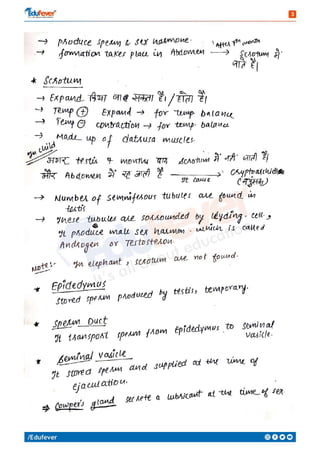 Edufever
3
→ produce sperm & sex harmone.
→ formation takes place in Abdomen → Scrotum में
after 7th month
जाते हैं।
* Scrotum
→ Expand किया जा सकता है। / होता है।
→ Temp (+) Expand → for temp balance
→ Temp (-) contraction → for temp. balance
→ Made up of dartusa muscles.
In child
अगर testis 7 months बाद scrotum में नहीं जाती है।
और Abdomen में रह जाती है → Cryptorchidism
It cause
(नपुंसक)
→ Number of seminiferous tubules are found in
testis
→ These tubules are sorrounded by leyding-cell,
It produce male sex harmon. which is called
Androgen or Testosteron.
Note:- In elephant, scrotum are not found.
* Epidedymus
stored sperm produced by testis, temporary.
* Sperm Duct
It transport sperm from Epidedymus to seminal
vasicle.
* Seminal vasicle
It stored sperm and supplied at the time of
ejaculation.
⇒ Cowper's gland secrete a lubricant at the time of sex
/Edufever